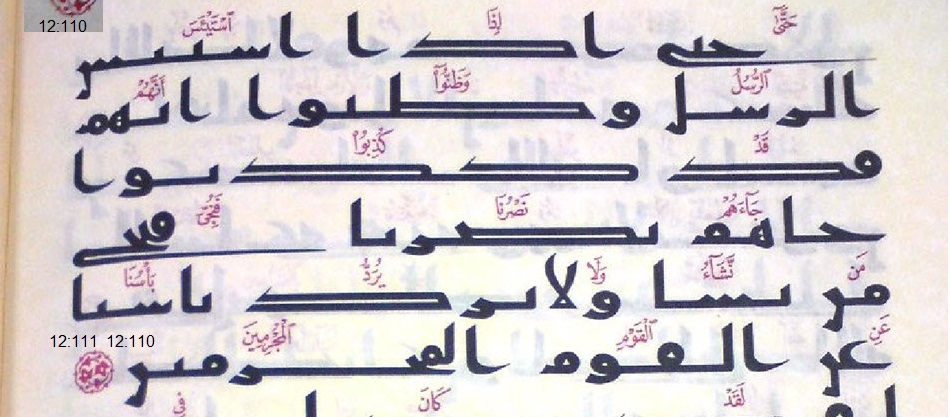 12:110
حَتَّىٰٓ إِذَا ٱسْتَيْـَٔسَ
حتى اذا استيس
ٱلرُّسُلُ وَظَنُّوٓا۟ أَنَّهُمْ
الرسل وظنوا انهم
قَدْ كُذِبُوا۟
قد كذبوا
جَآءَهُمْ نَصْرُنَا فَنُجِّىَ
جاهم نصرنا فنجى
مَن نَّشَآءُ وَلَا يُرَدُّ بَأْسُنَا
من نشا ولا يرد باسنا
عَنِ ٱلْقَوْمِ ٱلْمُجْرِمِينَ
12:111 12:110
عن القوم المجرمين
لَقَدْ كَانَ فِى